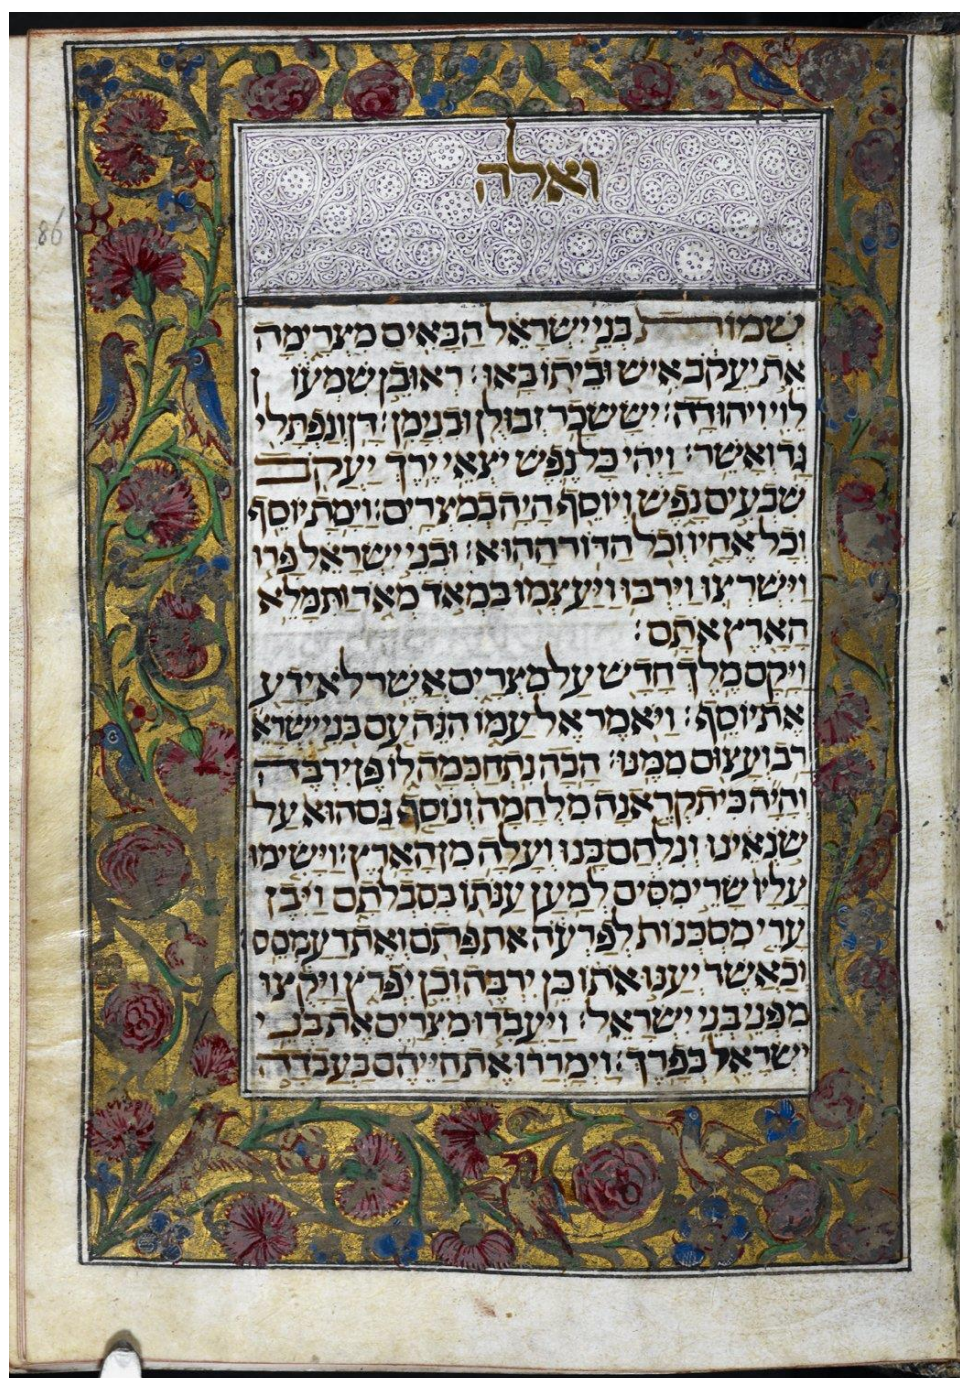 ואלה
86
שמות בני ישראל הבאים מצרימה
את יעקב איש וביתו באו׃ ראובן שמעון
לוי ויהודה׃ יששכר זבולן ובנימן׃ דן ונפתלי
גד ואשר׃ ויהי כל נפש יצאי ירך יעקב
שבעים נפש ויוסף היה במצרים׃ וימת יוסף
וכל אחיו וכל הדור ההוא׃ ובני ישראל פרו
וישרצו וירבו ויעצמו במאד מאד ותמלא
הארץ אתם׃
ויקם מלך חדש על מצרים אשר לא ידע
את יוסף׃ ויאמר אל עמו הנה עם בני ישרא
רב ועצום ממנו׃ הבה נתחכמה לו פן ירבה
והיה כי תקראנה מלחמה ונוסף גם הוא על
שנאינו ונלחם בנו ועלה מן הארץ׃ וישימו
עליו שרי מסים למען ענתו בסבלתם ויבן
ערי מסכנות לפרעה את פתם ואת רעמסס
וכאשר יענו אתו כן ירבה וכן יפרץ ויקצו
מפני בני ישראל׃ ויעבדו מצרים את בני
ישראל בפרך׃ וימררו את חייהם בעבדה